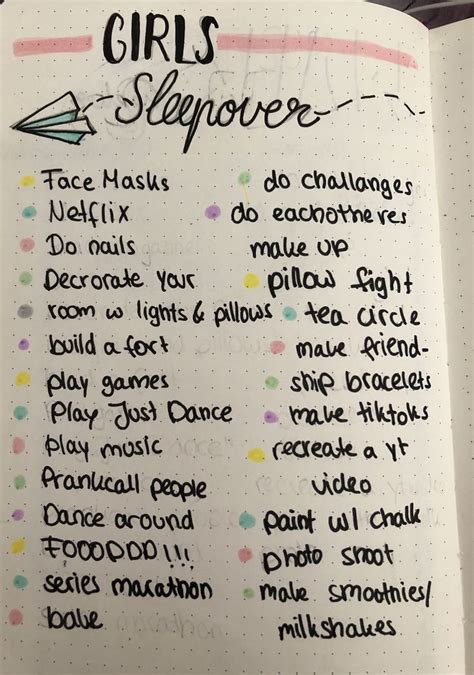 GIRLS
Sleepover
Face Masks
Netflix
Do nails
Decrorate Your
room w lights & pillows
build a fort
play games
Play Just Dance
Play music
Prankcall people
Dance around
FOOODDD!!!
series marathon
bake
do challanges
do eachotheres
make up
pillow fight
tea circle
make friend-
ship bracelets
make tiktoks
recreate a yt
video
paint w/ chalk
photo shoot
make smoothies/
milkshakes